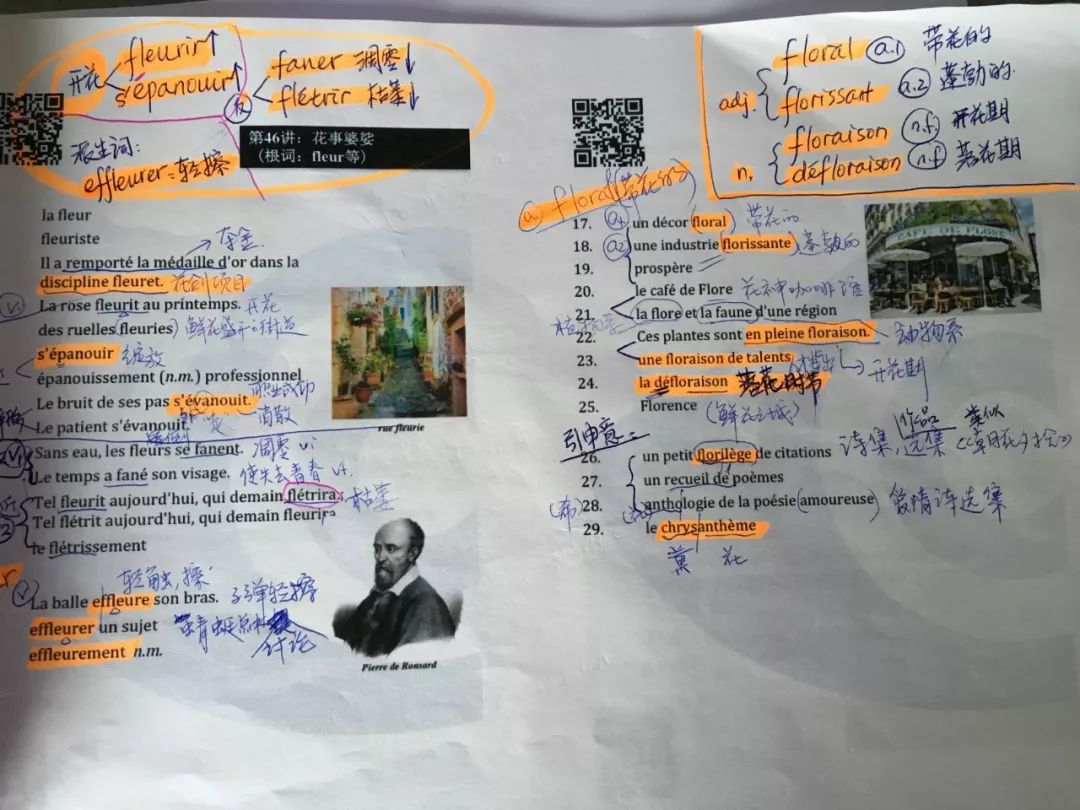 开花 fleurir↑
s'épanouir↑
反 faner 凋零↓
flétrir 枯萎↓
派生词:
effleurer=轻擦
第46讲：花事婆娑
（根词：fleur等）
la fleur
fleuriste
→夺金
Il a remporté la médaille d'or dans la
discipline fleuret. 花剑项目
La rose fleurit au printemps. 开花
des ruelles (fleuries) 鲜花盛开的街道
s'épanouir 绽放
épanouissement (n.m.) professionnel
职业成功
Le bruit de ses pas s'évanouit. 消散
Le patient s'évanouit.
Sans eau, les fleurs se fanent. 凋零 vi
Le temps a fané son visage. 使失去青春 vt.
Tel fleurit aujourd'hui, qui demain flétrira. 枯萎
Tel flétrit aujourd'hui, qui demain fleurira
le flétrissement
轻触,擦
La balle effleure son bras. 子弹轻擦
effleurer un sujet 蜻蜓点水
讨论
effleurement n.m.
rue fleurie
Pierre de Ronsard
adj. floral (a.1) 带花的
florissant (a.2) 蓬勃的
n. floraison (n.f.) 开花期
défloraison (n.f) 落花期
(a) floral (带花的)
17. (a1) un décor floral 带花的
18. (a2) une industrie florissante 蓬勃的
19. prospère
20. le café de Flore 花神咖啡馆
21. la flore et la faune d'une région
植物系
22. Ces plantes sont en pleine floraison. 动物系
23. une floraison de talents 开花期
24. la défloraison 落花时节
25. Florence (鲜花之城)
引申意:
作品 类似
26. un petit florilège de citations 诗集,选集 《朝花夕拾》
27. un recueil de poèmes
28. anthologie de la poésie (amoureuse) 爱情诗选集
(希)
29. le chrysanthème
菊花
CAFE DE FLORE